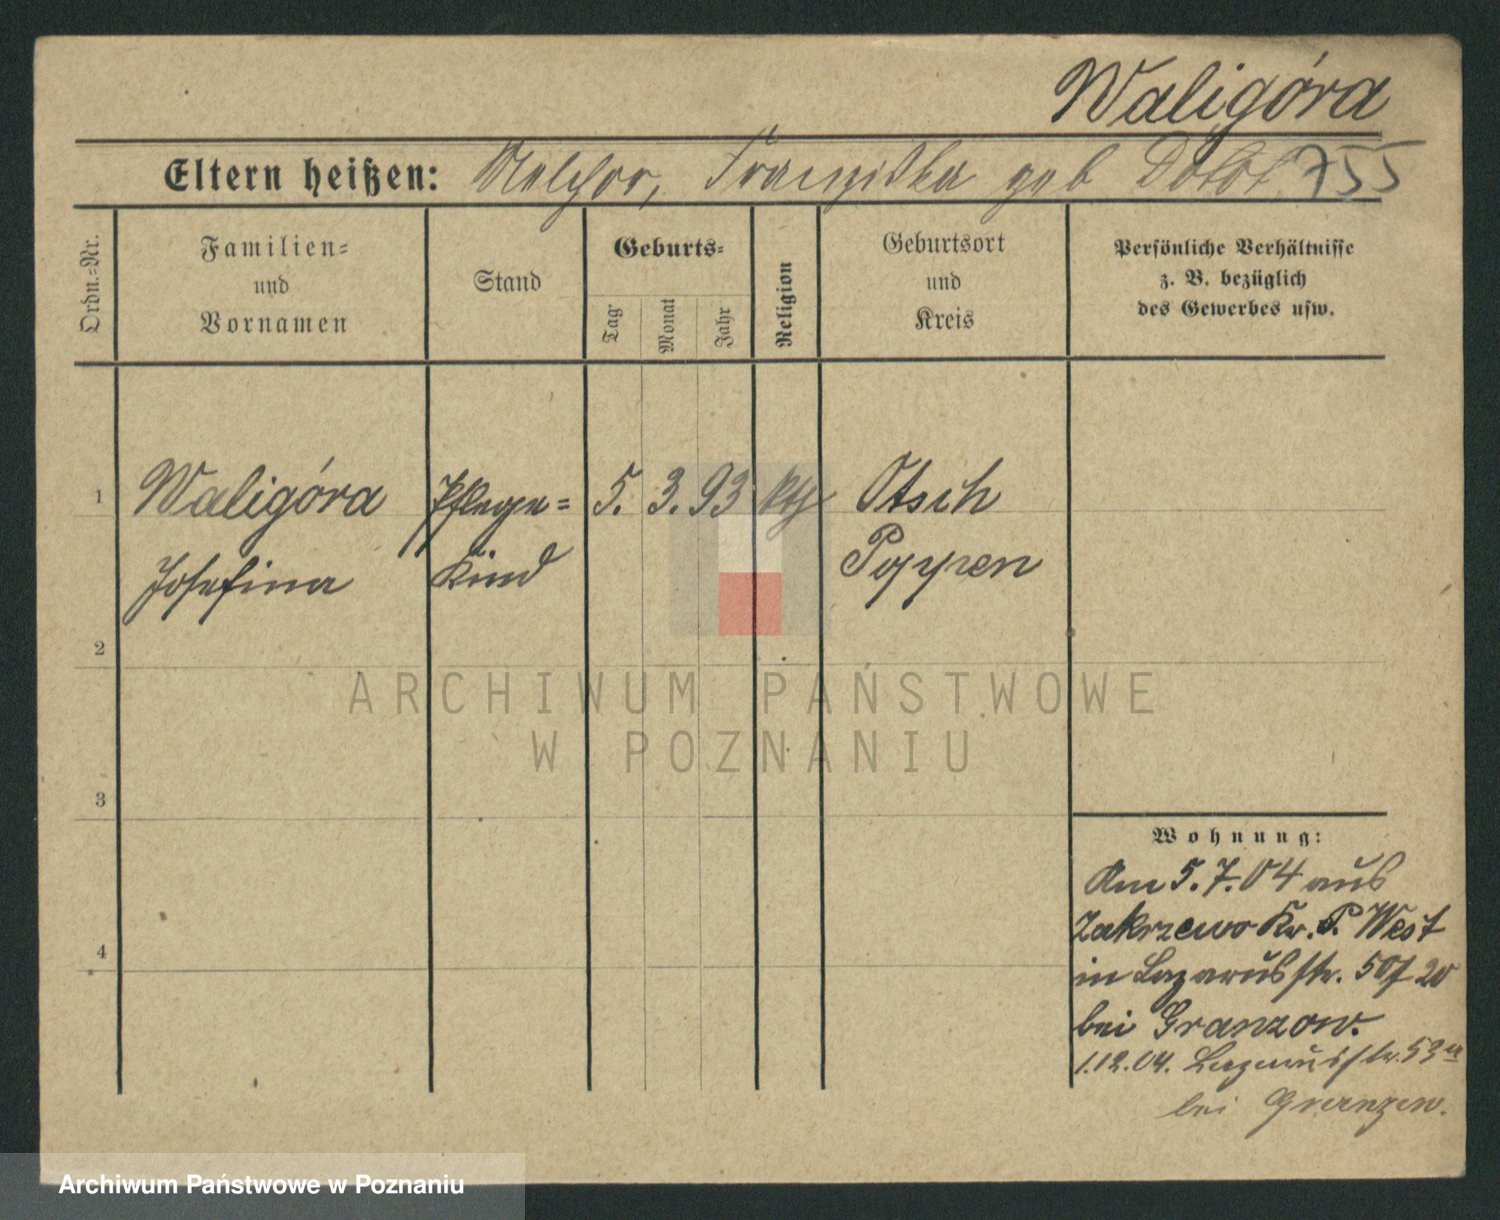 Waligóra
Eltern heißen: Melchor, Franziska geb 755
Ordn.=Nr.
Familien=
und
Vornamen
Stand
Geburts=
Tag
Monat
Jahr
Religion
Geburtsort
und
Kreis
Persönliche Verhältnisse
z. B. bezüglich
des Gewerbes usw.
1 Waligóra Pflege= 5. 3. 93 kth Otsch
Josefina Kind Poppen
2
3
4
Wohnung:
Am 5.7.04 aus
Zakrzewo Kr. P. West
in Lazarusstr. 50
bei Granzow.
1.12.04. Lazarusstr. 53a
bei Granzow.
ARCHIWUM PAŃSTWOWE
W POZNANIU
Archiwum Państwowe w Poznaniu